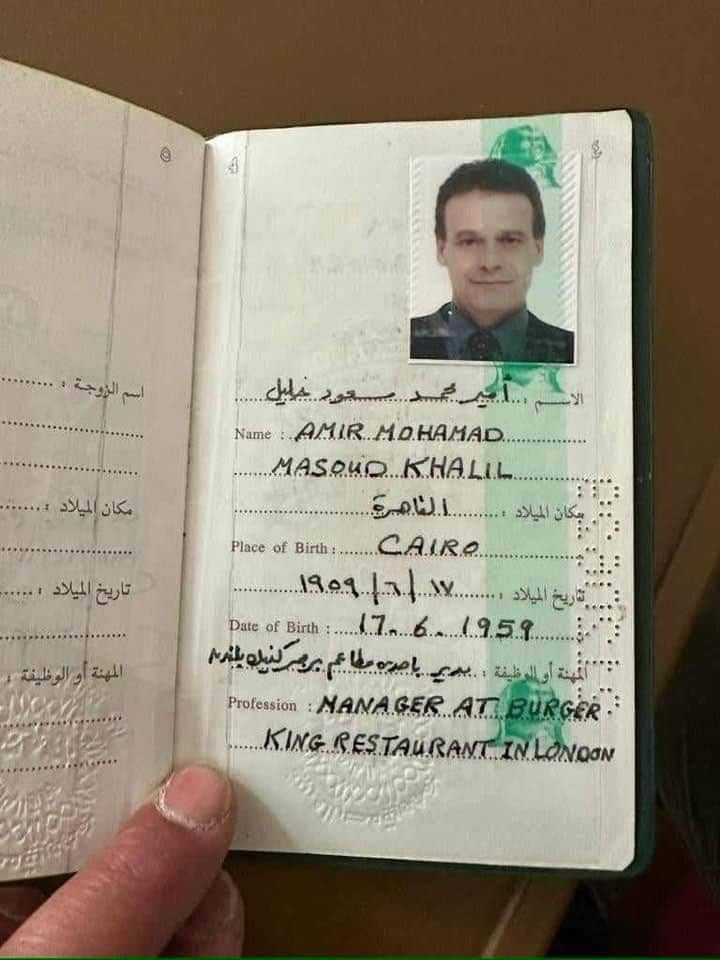 اسم الزوجة :
مكان الميلاد :
تاريخ الميلاد :
المهنة أو الوظيفة :
٤
الاسم : أمير محمد مسعود خليل
Name : AMIR MOHAMAD
MASOUD KHALIL
مكان الميلاد : القاهرة
Place of Birth : CAIRO
تاريخ الميلاد : ١٧ / ٦ / ١٩٥٩
Date of Birth : 17. 6. 1959
المهنة أو الوظيفة : مدير باحدى مطاعم برجر كنج بلندن
Profession : MANAGER AT BURGER
KING RESTAURANT IN LONDON